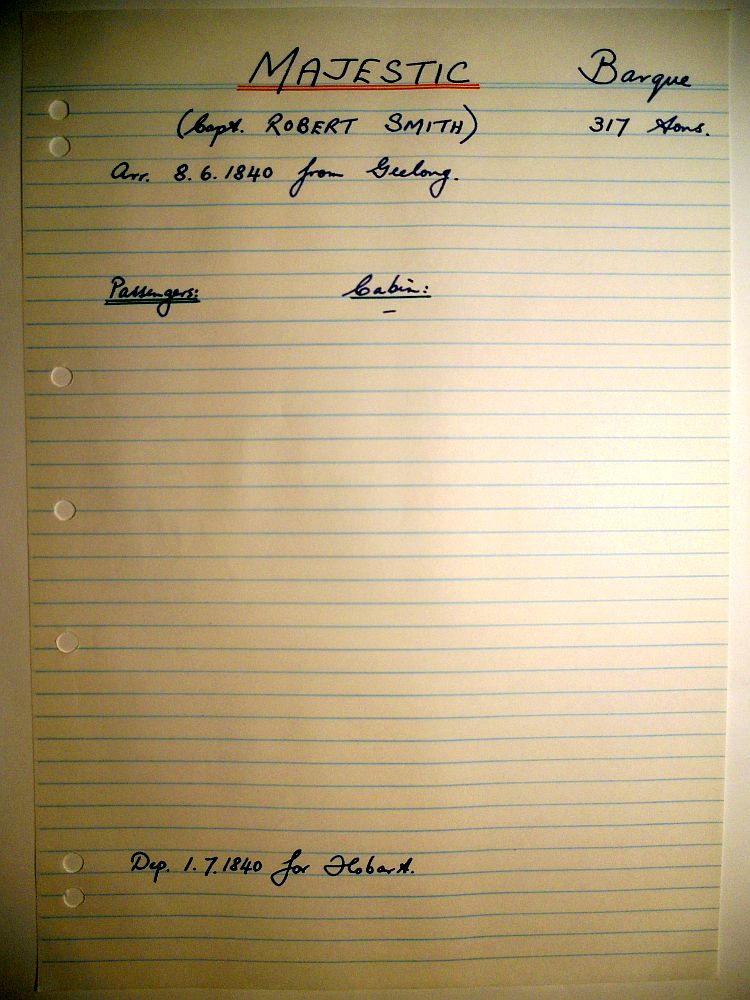 MAJESTIC Barque
(Capt. ROBERT SMITH) 317 tons.
Arr. 8.6.1840 from Geelong.
Passengers: Cabin:
–
Dep. 1.7.1840 for Hobart.